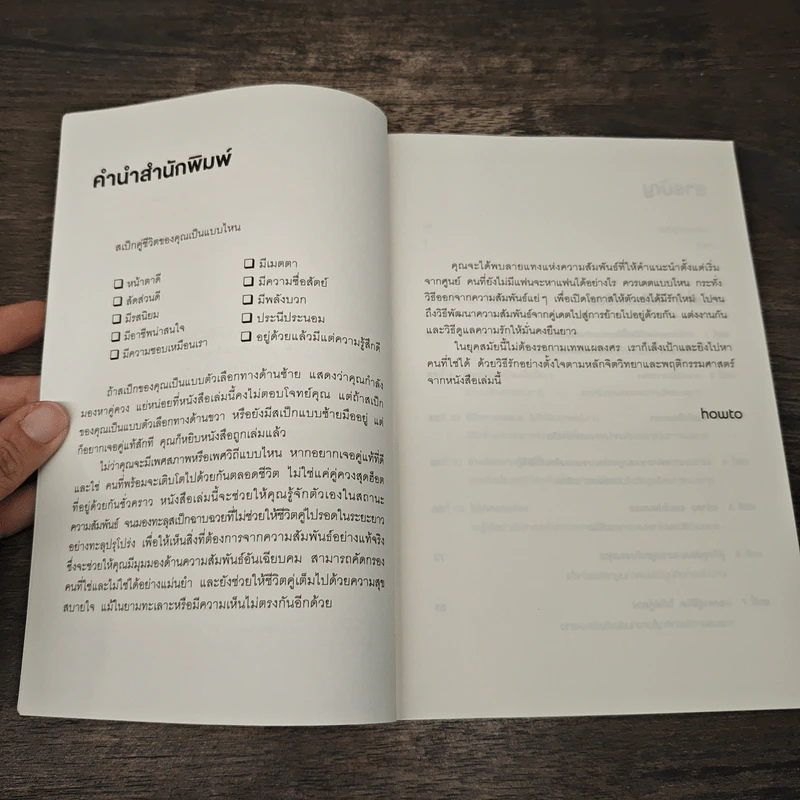 คำนำสำนักพิมพ์
สเป็กคู่ชีวิตของคุณเป็นแบบไหน
❑ หน้าตาดี
❑ สัดส่วนดี
❑ มีรสนิยม
❑ มีอาชีพน่าสนใจ
❑ มีความชอบเหมือนเรา
❑ มีเมตตา
❑ มีความซื่อสัตย์
❑ มีพลังบวก
❑ ประนีประนอม
❑ อยู่ด้วยแล้วมีแต่ความรู้สึกดี
ถ้าสเป็กของคุณเป็นแบบตัวเลือกทางด้านซ้าย แสดงว่าคุณกำลัง
มองหาคู่ควง แย่หน่อยที่หนังสือเล่มนี้คงไม่ตอบโจทย์คุณ แต่ถ้าสเป็ก
ของคุณเป็นแบบตัวเลือกทางด้านขวา หรือยังมีสเป็กแบบซ้ายมืออยู่ แต่
ก็อยากเจอคู่แท้สักที คุณก็หยิบหนังสือถูกเล่มแล้ว
ไม่ว่าคุณจะมีเพศสภาพหรือเพศวิถีแบบไหน หากอยากเจอคู่แท้ที่ดี
และใช่ คนที่พร้อมจะเติบโตไปด้วยกันตลอดชีวิต ไม่ใช่แค่คู่ควงสุดฮ็อต
ที่อยู่ด้วยกันชั่วคราว หนังสือเล่มนี้จะช่วยให้คุณรู้จักตัวเองในสถานะ
ความสัมพันธ์ จนมองทะลุสเป็กฉาบฉวยที่ไม่ช่วยให้ชีวิตคู่ไปรอดในระยะยาว
อย่างทะลุปรุโปร่ง เพื่อให้เห็นสิ่งที่ต้องการจากความสัมพันธ์อย่างแท้จริง
ซึ่งจะช่วยให้คุณมีมุมมองด้านความสัมพันธ์อันเฉียบคม สามารถคัดกรอง
คนที่ใช่และไม่ใช่ได้อย่างแม่นยำ และยังช่วยให้ชีวิตคู่เต็มไปด้วยความสุข
สบายใจ แม้ในยามทะเลาะหรือมีความเห็นไม่ตรงกันอีกด้วย
คุณจะได้พบลายแทงแห่งความสัมพันธ์ที่ให้คำแนะนำตั้งแต่เริ่ม
จากศูนย์ คนที่ยังไม่มีแฟนจะหาแฟนได้อย่างไร ควรเดตแบบไหน กระทั่ง
วิธีออกจากความสัมพันธ์แย่ๆ เพื่อเปิดโอกาสให้ตัวเองได้มีรักใหม่ ไปจน
ถึงวิธีพัฒนาความสัมพันธ์จากคู่เดตไปสู่การย้ายไปอยู่ด้วยกัน แต่งงานกัน
และวิธีดูแลความรักให้มั่นคงยืนยาว
ในยุคสมัยนี้ไม่ต้องรอกามเทพแผลงศร เราก็เล็งเป้าและยิงไปหา
คนที่ใช่ได้ ด้วยวิธีรักอย่างตั้งใจตามหลักจิตวิทยาและพฤติกรรมศาสตร์
จากหนังสือเล่มนี้
howto